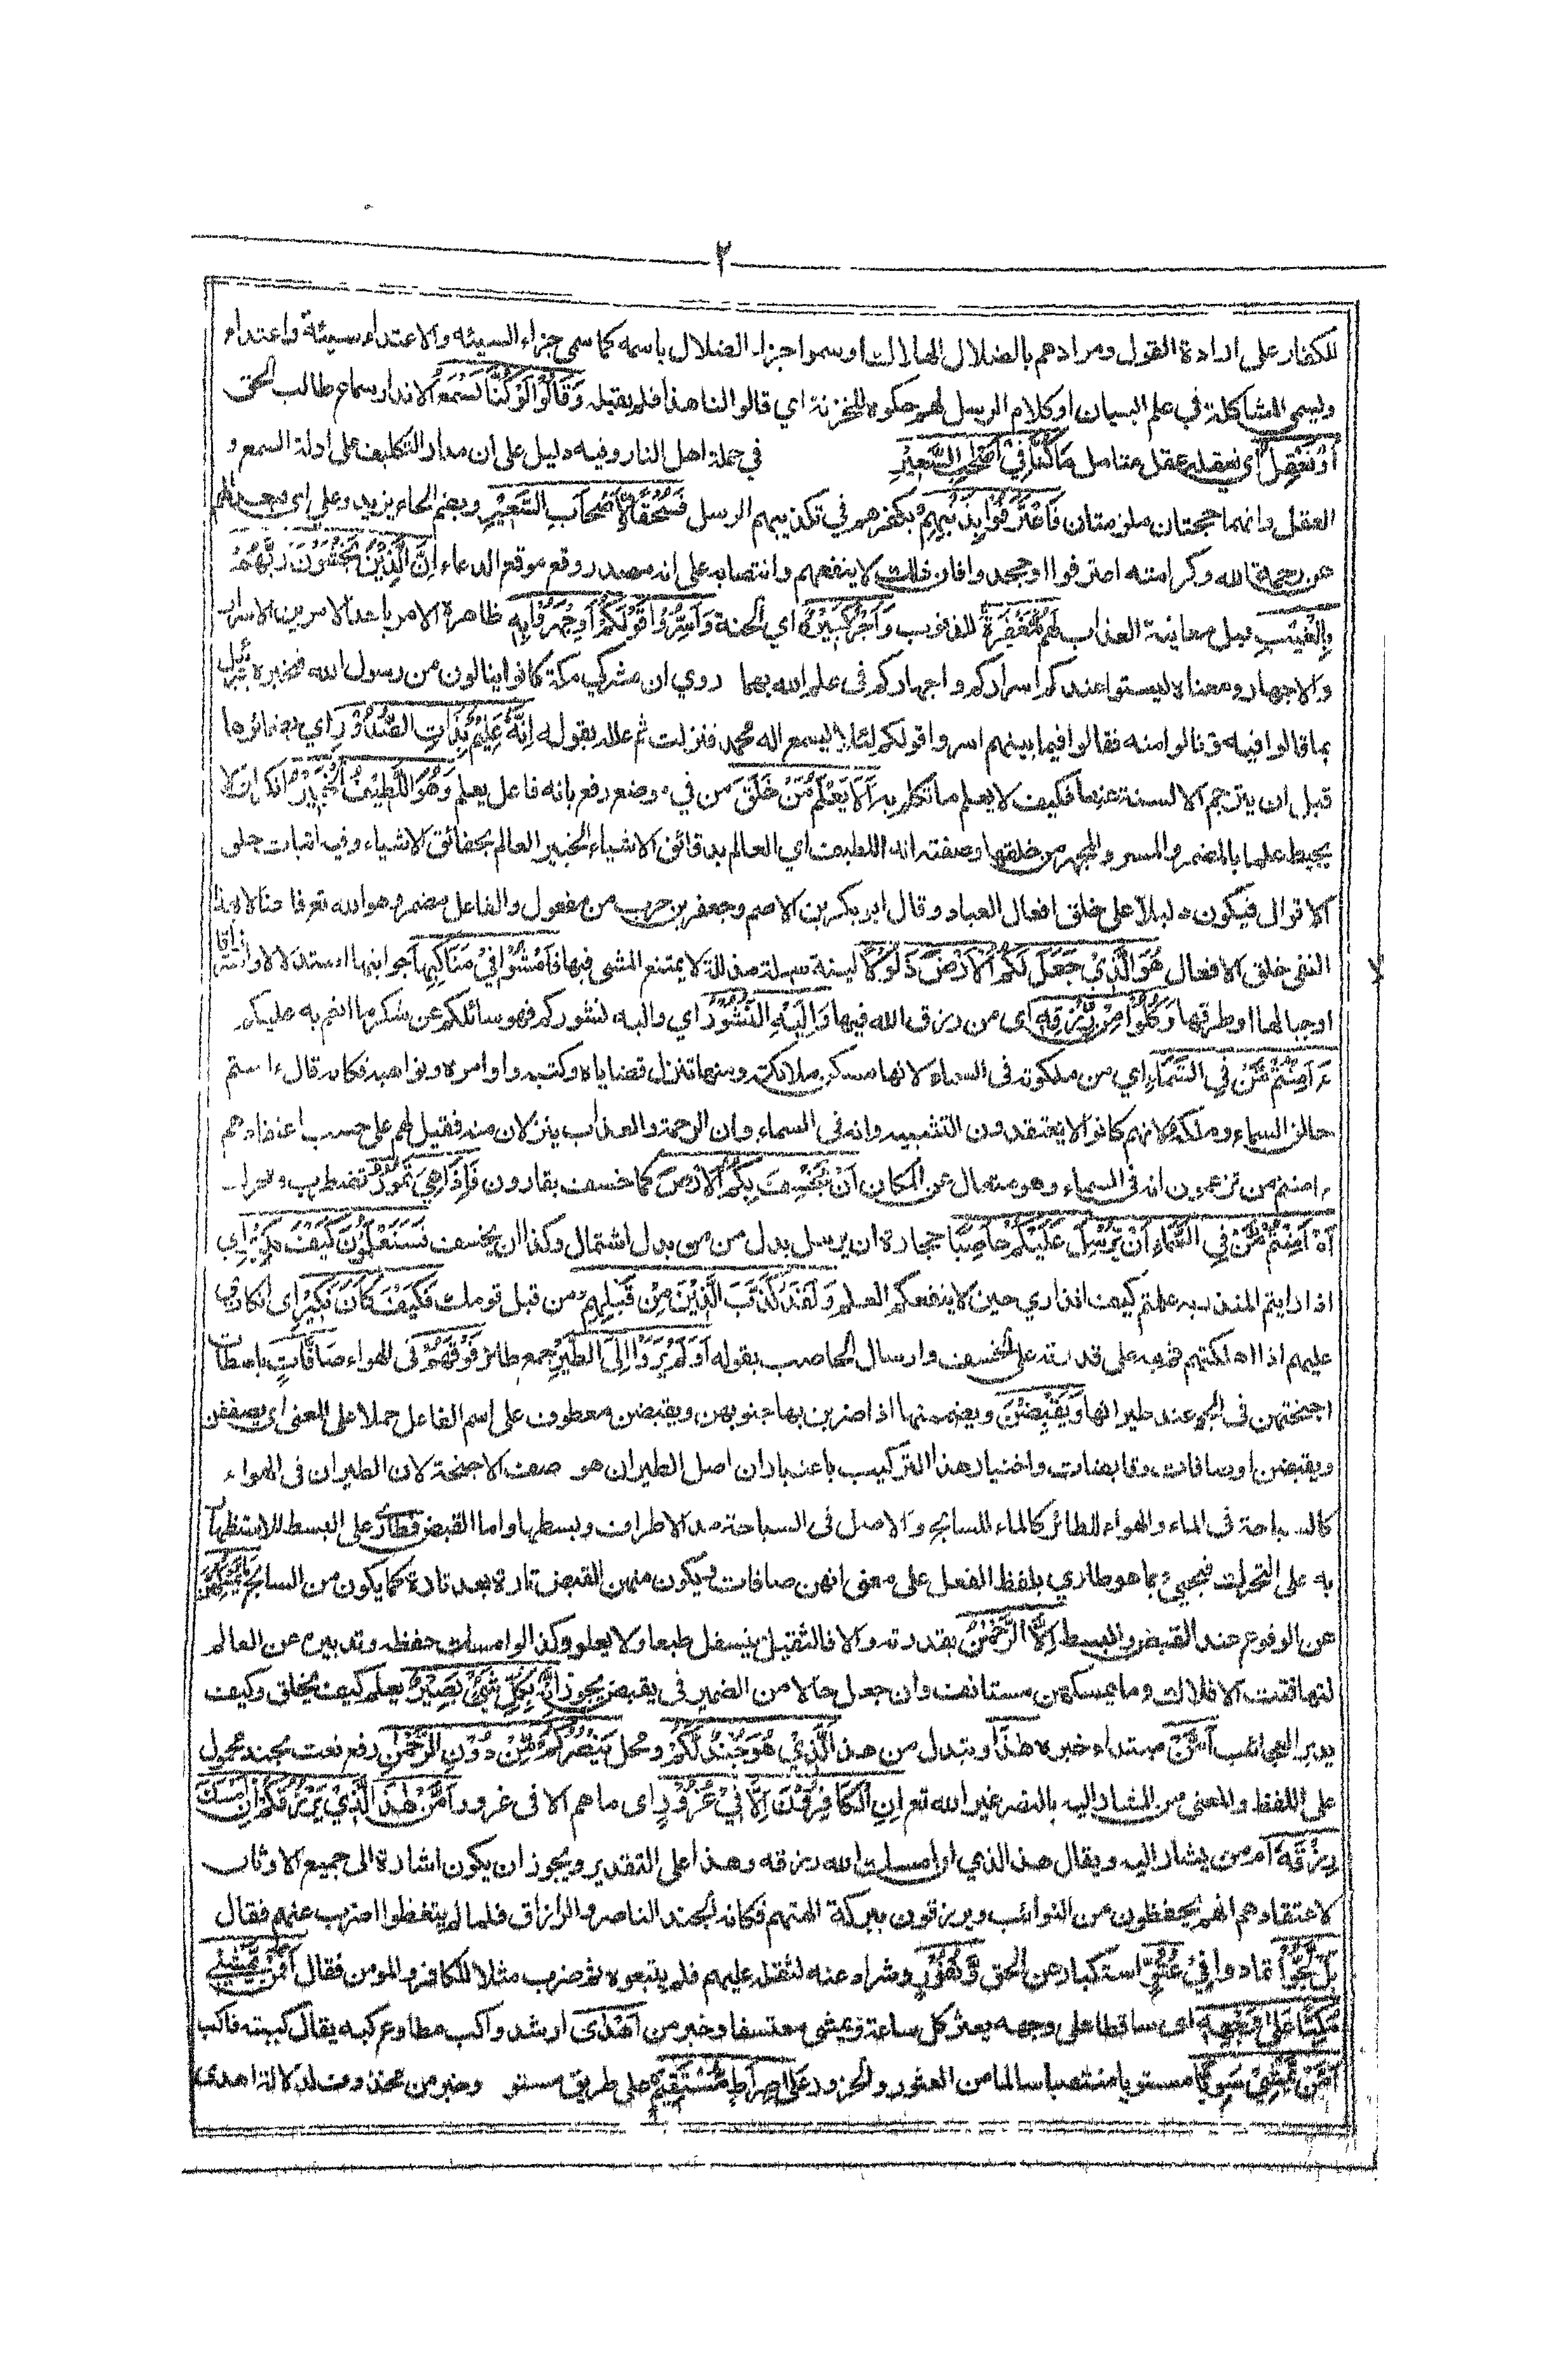 ٢
للكفار على ارادة القول ومرادهم بالضلال الهلاك او سموا جزاء الضلال باسمه كما سمى جزاء السيئه والاعتداء سيئة واعتداء
وليسمى المشاكلة في علم البيان او كلام الرسل لهم حكوه للخزنة اي قالوا لنا هذا فلم نقبله وَقَالُوْا لَوْ كُنَّا نَسْمَعُ الانذار سماع طالب الحق
اَوْ نَعْقِلُ اي نعقله عقل متامل مَا كُنَّا فِيْ اَصْحٰبِ السَّعِيْرِ في جملة اهل النار وفيه دليل على ان مدار التكليف على ادلة السمع و
العقل وانهما حجتان ملزمتان فَاعْتَرَفُوْا بِذَنْبِهِمْ بكفرهم في تكذيبهم الرسل فَسُحْقًا لِّاَصْحَابِ السَّعِيْرِ وبضم الحاء يزيد وعلى اى فبعدا لهم
عن رحمة الله وكرامته اعترفوا او جحدوا فان ذلك لا ينفعهم وانتصابه على انه مصدر وقع موقع الدعاء اِنَّ الَّذِيْنَ يَخْشَوْنَ رَبَّهُمْ
بِالْغَيْبِ قبل معاينة العذاب لَهُمْ مَّغْفِرَةٌ للذنوب وَّاَجْرٌ كَبِيْرٌ اي الجنة وَاَسِرُّوْا قَوْلَكُمْ اَوِ اجْهَرُوْا بِهٖ ظاهره الامر باحد الامرين الاسرار
والاجهار ومعناه ليستوا عندكم اسراركم واجهاركم في علم الله بهما روي ان مشركي مكة كانوا ينالون من رسول الله فخبره جبرئيل
بما قالوا فيه ونالوا منه فقالوا فيما بينهم اسروا قولكم لئلا يسمع اله محمد فنزلت ثم علله بقوله اِنَّهٗ عَلِيْمٌۢ بِذَاتِ الصُّدُوْرِ اي بضمائرها
قبل ان يترجم الالسنة عنها فكيف لا يعلم ما تكلم به اَلَا يَعْلَمُ مَنْ خَلَقَ من في موضع رفع بانه فاعل يعلم وَهُوَ اللَّطِيْفُ الْخَبِيْرُ انكر ان لا
يحيط علما بالمضمر والمسر والمجهر من خلقها وصفته انه اللطيف اي العالم بدقائق الاشياء الخبير العالم بحقائق الاشياء وفيه اثبات خلق
الاقوال فيكون دليلا على خلق افعال العباد وقال ابو بكر بن الاصم وجعفر بن حرب من مفعول والفاعل مضمر وهو الله تعر فاحتالا لهذا
النفى خلق الافعال هُوَ الَّذِيْ جَعَلَ لَكُمُ الْاَرْضَ ذَلُوْلًا لينة سهلة مذللة لا يمتنع المشى فيها فَامْشُوْا فِيْ مَنَاكِبِهَا جوانبها استدلالا
او جبالها او طرقها وَكُلُوْا مِنْ رِّزْقِهٖ اى من رزق الله فيها وَاِلَيْهِ النُّشُوْرُ اي واليه نشوركم فهو سائلكم عن شكر ما انعم به عليكم
ءَاَمِنْتُمْ مَّنْ فِي السَّمَآءِ اي من ملكوته في السماء لانها مسكن ملائكته ومنها تنزل قضاياه وكتبه واوامره ونواهيه فكانه قال ءامنتم
خالق السماء وملكه لانهم كانوا لا يعتقدون التشبيه وانه في السماء وان الرحمة والعذاب ينزلان منه فقيل لهم على حسب اعتقادهم
ءامنتم من تزعمون انه في السماء وهو متعال عن المكان اَنْ يَّخْسِفَ بِكُمُ الْاَرْضَ كما خسف بقارون فَاِذَا هِيَ تَمُوْرُ تضطرب وتحرك
اَمْ اَمِنْتُمْ مَّنْ فِي السَّمَآءِ اَنْ يُّرْسِلَ عَلَيْكُمْ حَاصِبًا حجارة ان يرسل بدل من من بدل اشتمال وكذا ان يخسف فَسَتَعْلَمُوْنَ كَيْفَ نَذِيْرِ اي
اذا رايتم المنذر به علمتم كيف انذاري حين لا ينفعكم العلم وَلَقَدْ كَذَّبَ الَّذِيْنَ مِنْ قَبْلِهِمْ من قبل قومك فَكَيْفَ كَانَ نَكِيْرِ اى انكارى
عليهم اذا اهلكتهم ثم نبه على قدرته على الخسف وارسال الحاصب بقوله اَوَلَمْ يَرَوْا اِلَى الطَّيْرِ جمع طائر فَوْقَهُمْ في الهواء صَآفَّاتٍ باسطات
اجنحتهن في الجو عند طيرانها وَيَقْبِضْنَ ويضممنها اذا ضربن بها جنوبهن ويقبضن معطوف على اسم الفاعل حملا على المعنى اي يصففن
ويقبضن او صافات وقابضات واختيار هذا التركيب باعتبار ان اصل الطيران هو صف الاجنحة لان الطيران في الهواء
كالسباحة في الماء والهواء للطائر كالماء للسابح والاصل في السباحة مد الاطراف وبسطها واما القبض فطار على البسط للاستظهار
به على التحرك فجيئ بما هو طاري بلفظ الفعل على معنى انهن صافات ويكون منهن القبض تارة بعد تارة كما يكون من السابح مَا يُمْسِكُهُنَّ
عن الوقوع عند القبض والبسط اِلَّا الرَّحْمٰنُ بقدرته والا فالثقيل ينسفل طبعا ولا يعلو وكذا لو امسك حفظه وتدبيره عن العالم
لتهافتت الافلاك وما يمسكهن مستانف وان جعل حالا من الضمير في يقبضن يجوز اِنَّهٗ بِكُلِّ شَيْءٍۢ بَصِيْرٌ يعلم كيف يخلق وكيف
يدبر العجائب اَمَّنْ مبتداء خبره هٰذَا ويتبدل من هذا الَّذِيْ هُوَ جُنْدٌ لَّكُمْ ومحل يَنْصُرُكُمْ مِّنْ دُوْنِ الرَّحْمٰنِ رفع نعت لجند محمول
على اللفظ والمعنى من المشار اليه بالنصر غير الله تعر اِنِ الْكَافِرُوْنَ اِلَّا فِيْ غُرُوْرٍ اى ما هم الا في غرور اَمَّنْ هٰذَا الَّذِيْ يَرْزُقُكُمْ اِنْ اَمْسَكَ
رِزْقَهٗ ام من يشار اليه ويقال هذا الذي ان امسك الله رزقه وهذا على التقدير ويجوز ان يكون اشارة الى جميع الاوثان
لاعتقادهم انهم يحفظون من النوائب ويرزقون ببركة الهتهم فكانه الجند الناصر والرازق فلما لم يتعظوا اضرب عنهم فقال
بَلْ لَّجُّوْا تمادوا فِيْ عُتُوٍّ استكبار عن الحق وَّنُفُوْرٍ وشراد عنه لثقله عليهم فلم يتبعوه ثم ضرب مثلا للكافر والمومن فقال اَفَمَنْ يَّمْشِيْ
مُكِبًّا عَلٰى وَجْهِهٖٓ اى ساقطا على وجهه يعثر كل ساعة ويمشى معتسفا وخبر من اَهْدٰى ارشد واكب مطاوع كبه يقال كببته فاكب
اَمَّنْ يَّمْشِيْ سَوِيًّا مستويا منتصبا سالما من العثور والخرور عَلٰى صِرَاطٍ مُّسْتَقِيْمٍ على طريق مستو وخبر من محذوف لدلالة اهدى